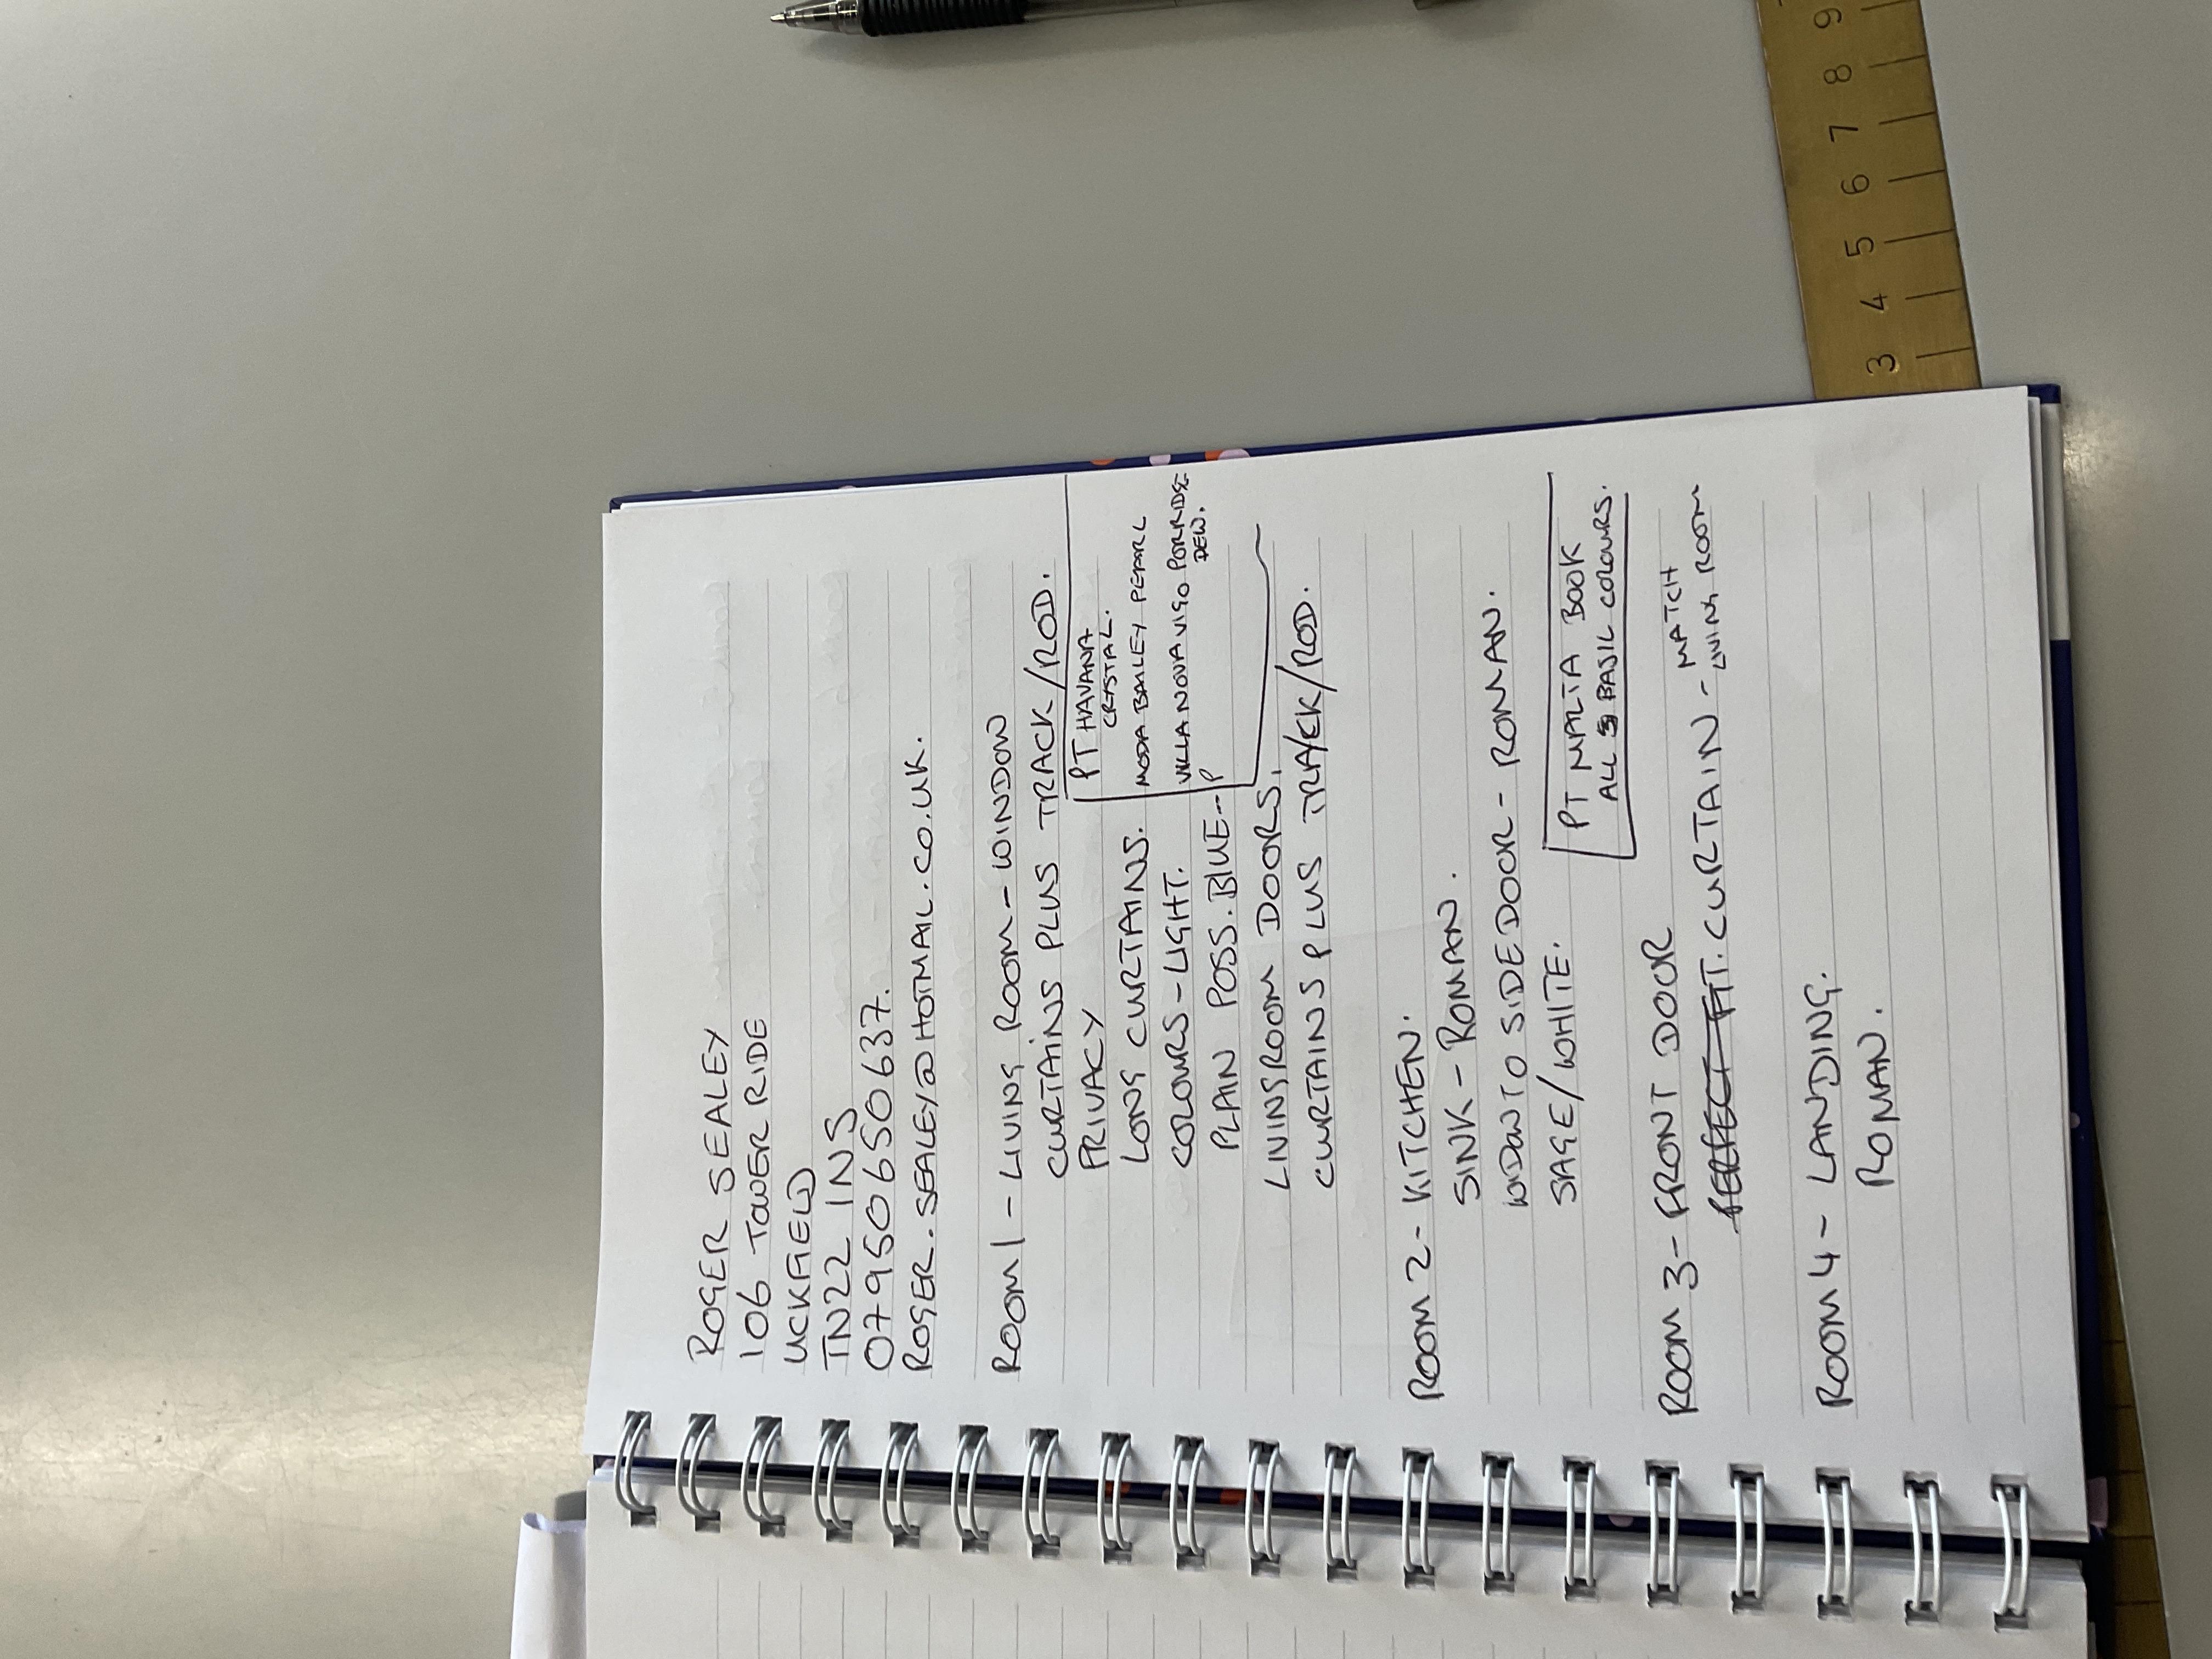 ROGER SEALEY
106 TOWER RIDE
UCKFIELD
TN22 1NS
07950650637.
ROGER.SEALEY@HOTMAIL.CO.UK.
ROOM 1 - LIVING ROOM - WINDOW
CURTAINS PLUS TRACK/ROD.
PRIVACY
LONG CURTAINS.
COLOURS - LIGHT.
PLAIN POSS. BLUE--P
PT HAVANA
CRYSTAL.
MODA BAILEY PEARL
VILLA NOVA VIGO PORRIDGE
DEW.
LIVINGROOM DOORS.
CURTAINS PLUS TRACK/ROD.
ROOM 2 - KITCHEN.
SINK - ROMAN.
WIDOW TO SIDE DOOR - ROMAN.
SAGE/WHITE.
PT MALTA BOOK
ALL 3 BASIL COLOURS.
ROOM 3 - FRONT DOOR
PERFECT FIT. CURTAIN - MATCH
LIVING ROOM
ROOM 4 - LANDING.
ROMAN.
3 4 5 6 7 8 9